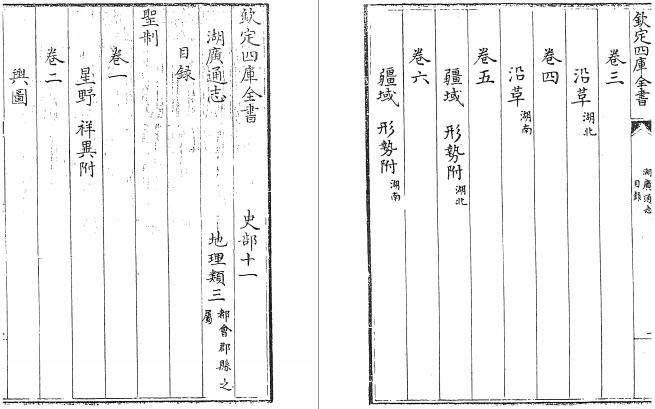 欽定四庫全書 史部十一
湖廣通志 地理類三 都會郡縣之屬
目録
聖制
卷一
星野 祥異附
卷二
輿圖
欽定四庫全書
湖廣通志
目録
卷三
沿革 湖北
卷四
沿革 湖南
卷五
疆域 形勢附 湖北
卷六
疆域 形勢附 湖南